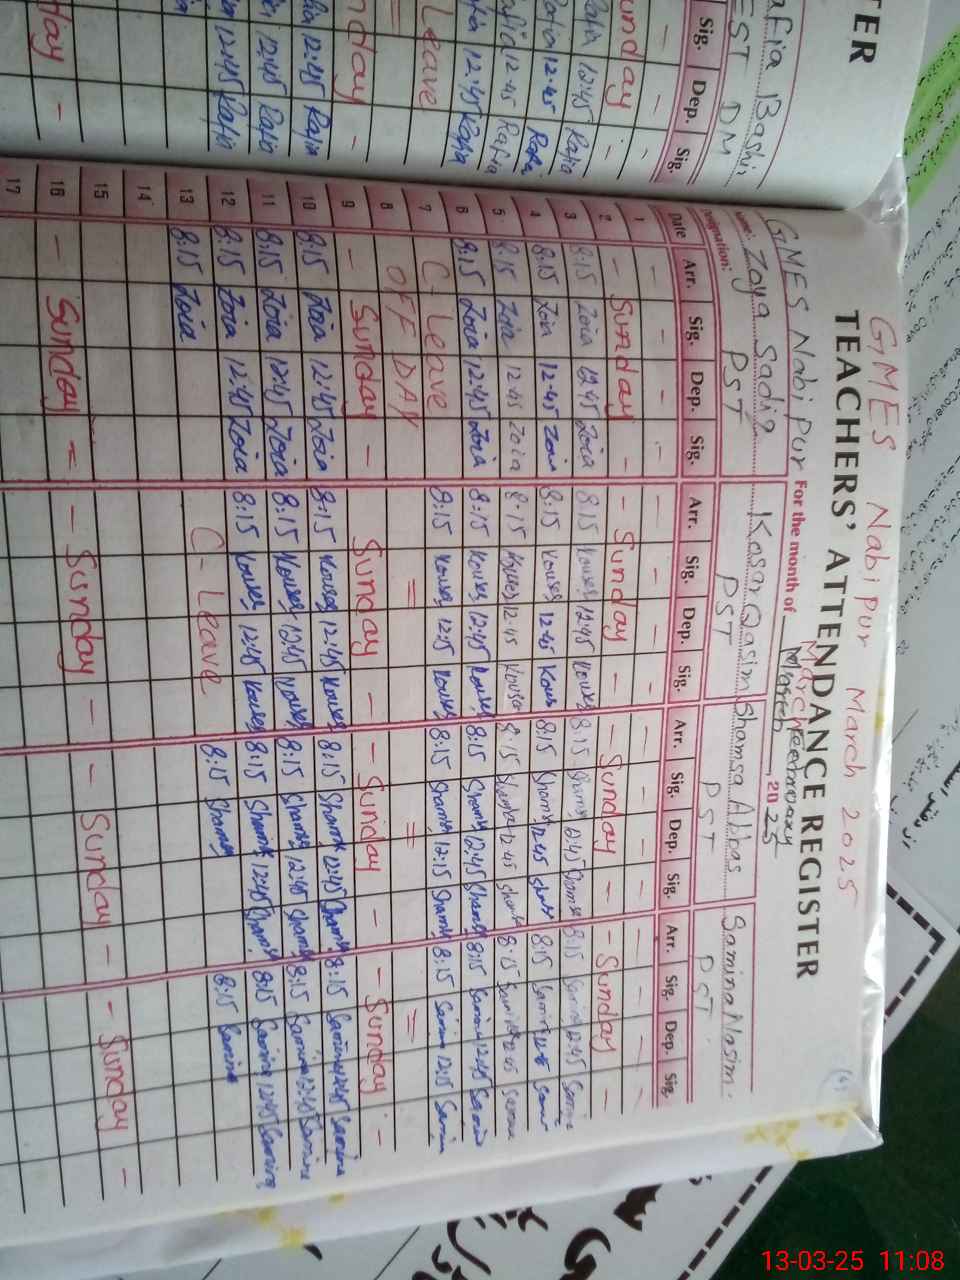 GMES Nabipur March 2025
TEACHERS' ATTENDANCE REGISTER
GMES Nabipur For the month of March 2025
Name: Zoya Sadiq Kosar Qasim Shamsa Abbas Samina Nasim
Designation: PST PST PST PST
Date Arr. Sig. Dep. Sig. Arr. Sig. Dep. Sig. Arr. Sig. Dep. Sig. Arr. Sig. Dep. Sig.
1 - - - - - - - - - - - -
2 - Sunday - - Sunday - - Sunday - - Sunday -
3 8:15 Zoia 12:45 Zoia 8:15 Kouser 12:45 Kouser 8:15 Shamsa 12:45 Shamsa 8:15 Samina 12:45 Samina
4 8:15 Zoia 12:45 Zoia 8:15 Kouser 12:45 Kouser 8:15 Shamsa 12:45 Shamsa 8:15 Samina 12:45 Samina
5 8:15 Zoia 12:45 Zoia 8:15 Kouser 12:45 Kouser 8:15 Shamsa 12:45 Shamsa 8:15 Samina 12:45 Samina
6 8:15 Zoia 12:45 Zoia 8:15 Kouser 12:45 Kouser 8:15 Shamsa 12:45 Shamsa 8:15 Samina 12:45 Samina
7 C-Leave 8:15 Kouser 12:15 Kouser 8:15 Shamsa 12:15 Shamsa 8:15 Samina 12:15 Samina
8 OFF DAY = = =
9 - Sunday - Sunday - - Sunday - - Sunday -
10 8:15 Zoia 12:45 Zoia 8:15 Kouser 12:45 Kouser 8:15 Shamsa 12:45 Shamsa 8:15 Samina 12:45 Samina
11 8:15 Zoia 12:45 Zoia 8:15 Kouser 12:45 Kouser 8:15 Shamsa 12:45 Shamsa 8:15 Samina 12:45 Samina
12 8:15 Zoia 12:45 Zoia 8:15 Kouser 12:45 Kouser 8:15 Shamsa 12:45 Shamsa 8:15 Samina 12:45 Samina
13 8:15 Zoia C-Leave 8:15 Shamsa 8:15 Samina
14
15
16 - Sunday = - Sunday - - Sunday - - Sunday -
17
TER
afia Bashir
EST DM
Sig. Dep. Sig.
- - -
unday -
Rafia 12:45 Rafia
Rafia 12:45 Rafia
Rafia 12:45 Rafia
Rafia 12:45 Rafia
Leave
=
nday -
Rafia 12:45 Rafia
12:45 Rafia
12:45 Rafia
day -
13-03-25 11:08